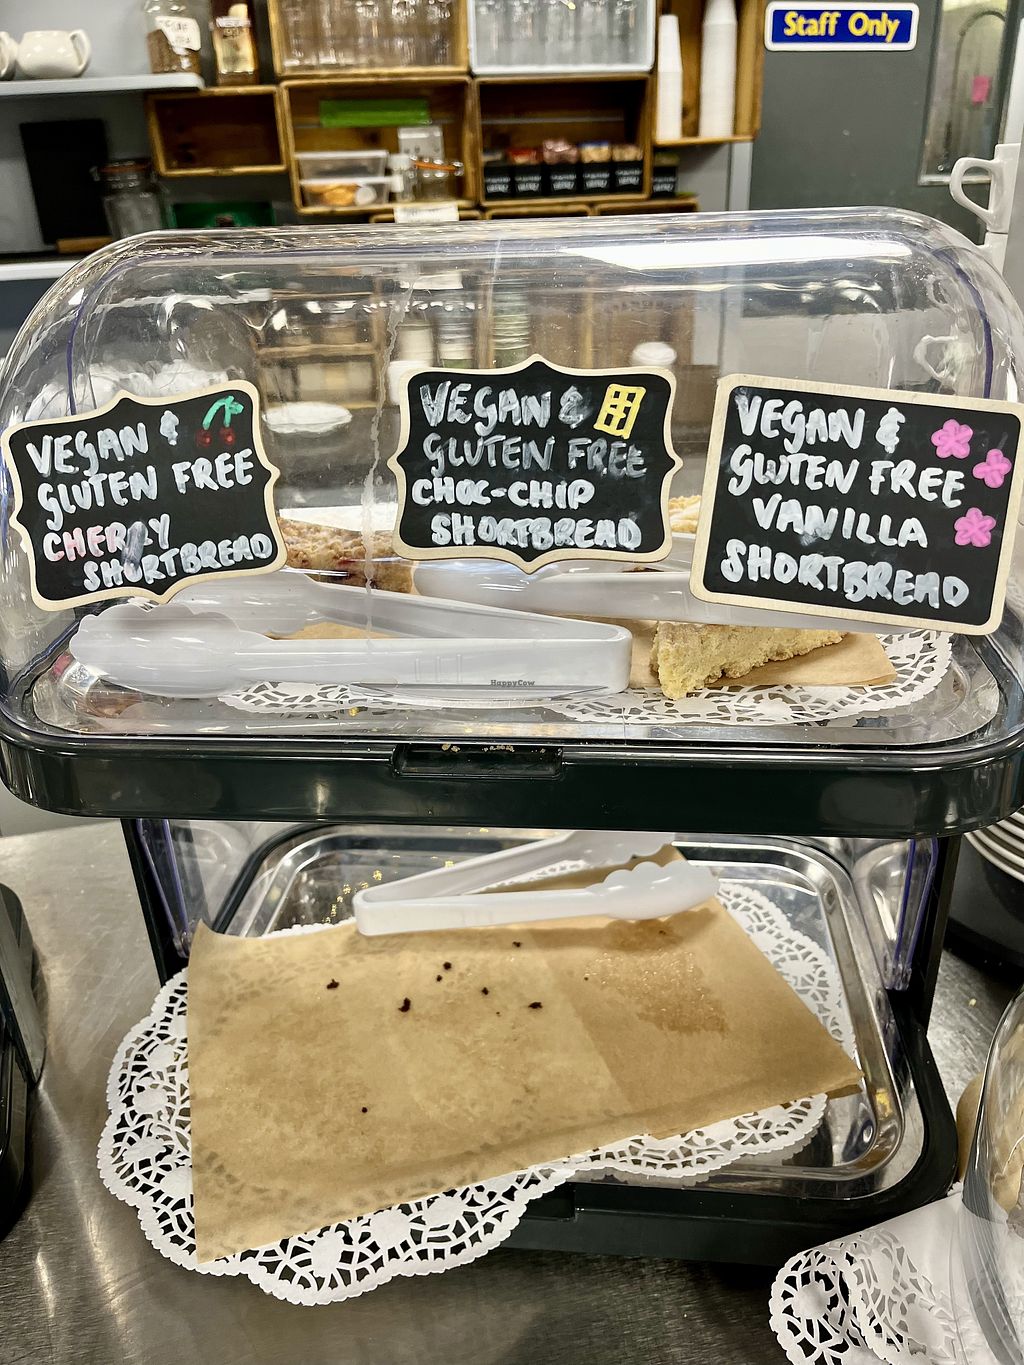 Staff Only
VEGAN &
GLUTEN FREE
CHERRY
SHORTBREAD
VEGAN &
GLUTEN FREE
CHOC-CHIP
SHORTBREAD
VEGAN &
GLUTEN FREE
VANILLA
SHORTBREAD
HappyCow